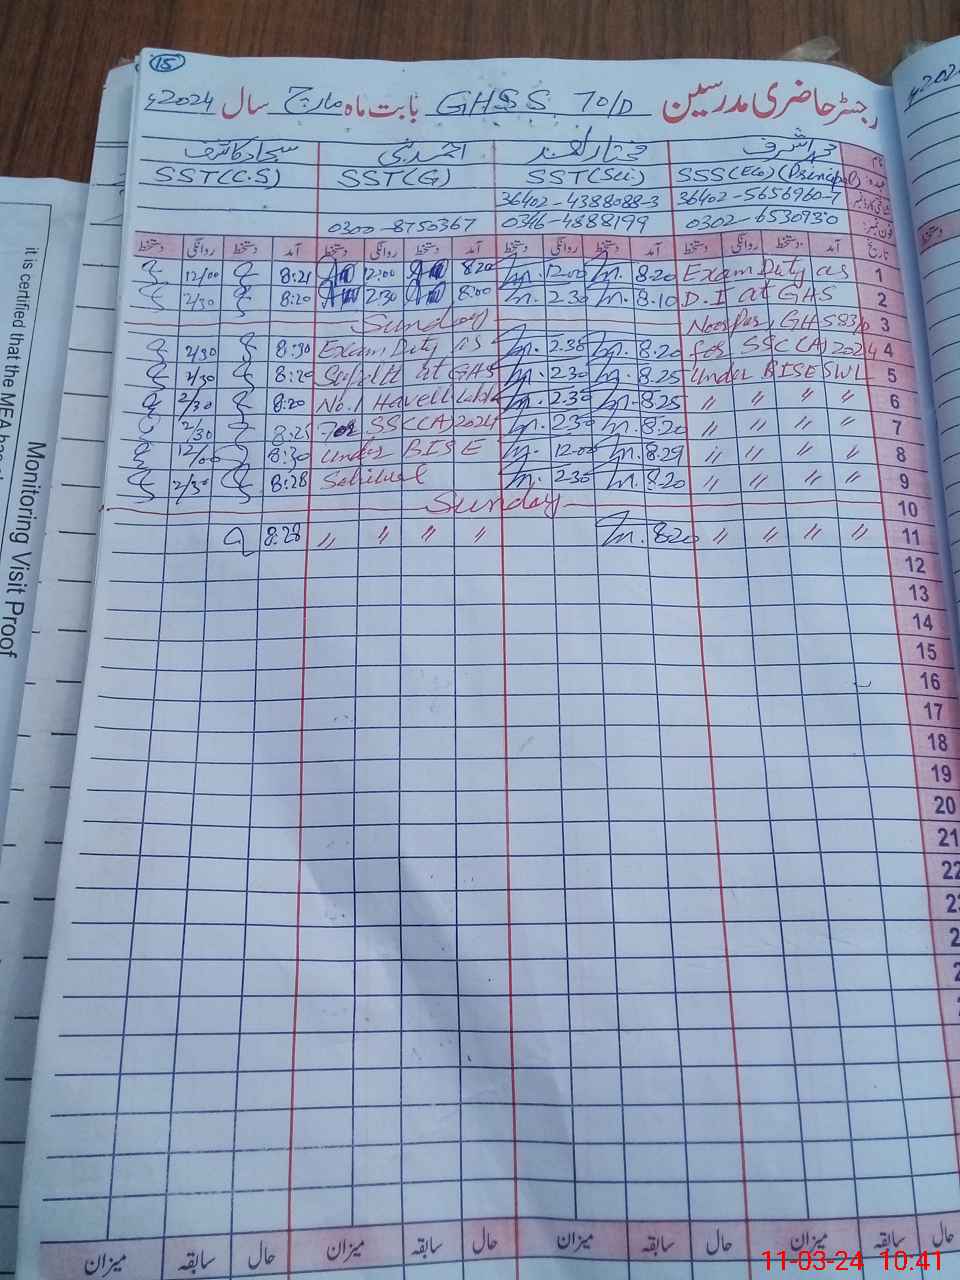 15
رجسٹر حاضری مدرسین GHSS 70/D بابت ماہ مارچ سال 2024ء
نام محمد اشرف مختار احمد احمد نبی سجاد کاشف
عہدہ SSS(Eco)(Principal) SST(Sci) SST(G) SST(C.S)
36402-5656960-7 36402-4388088-3
فون نمبر 0302-6530930 0346-4888199 0300-8750367
تاریخ آمد دستخط روانگی دستخط آمد دستخط روانگی دستخط آمد دستخط روانگی دستخط آمد دستخط روانگی دستخط
1 Exam Duty as 8.20 12.00 8.20 12:00 8:21 12/00
2 D.I at GHS 8.10 2.30 8:00 2:30 8:20 2/30
3 Sunday
4 for SSC(A) 2024 8.20 2.30 Exam Duty as 8:30 2/30
5 Under BISE SWL 8.25 2.30 at GHS 8:20 2/30
6 " " " 8.25 2.30 No.1 Haveli Lakha 8:20 2/30
7 " " " 8.20 2.30 For SSC(A) 2024 8:25 2/30
8 " " " 8.29 12.00 Under BISE 8:30 12/00
9 " " " 8.20 2.30 Sahiwal 8:28 2/30
10 Sunday
11 " " " " 8.20 " " " " 8:28
12
13
14
15
16
17
18
19
20
21
22
حال سابقہ میزان حال سابقہ میزان حال سابقہ میزان حال سابقہ میزان
it is certified that the MEA has
Monitoring Visit Proof
2024
دستخط
11-03-24 10.41